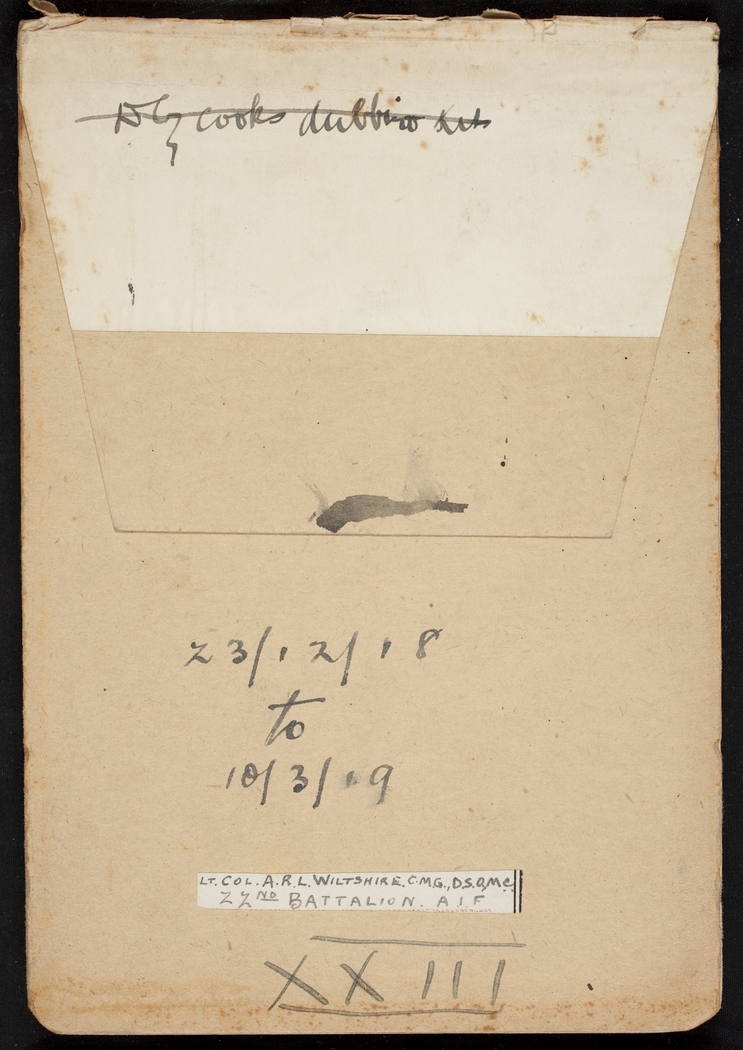 cooks dubbin
23/12/18
to
10/3/19
LT. COL. A.R.L. WILTSHIRE. C.M.G., D.S.O, M.C.
22ND BATTALION. A.I.F
XXIII